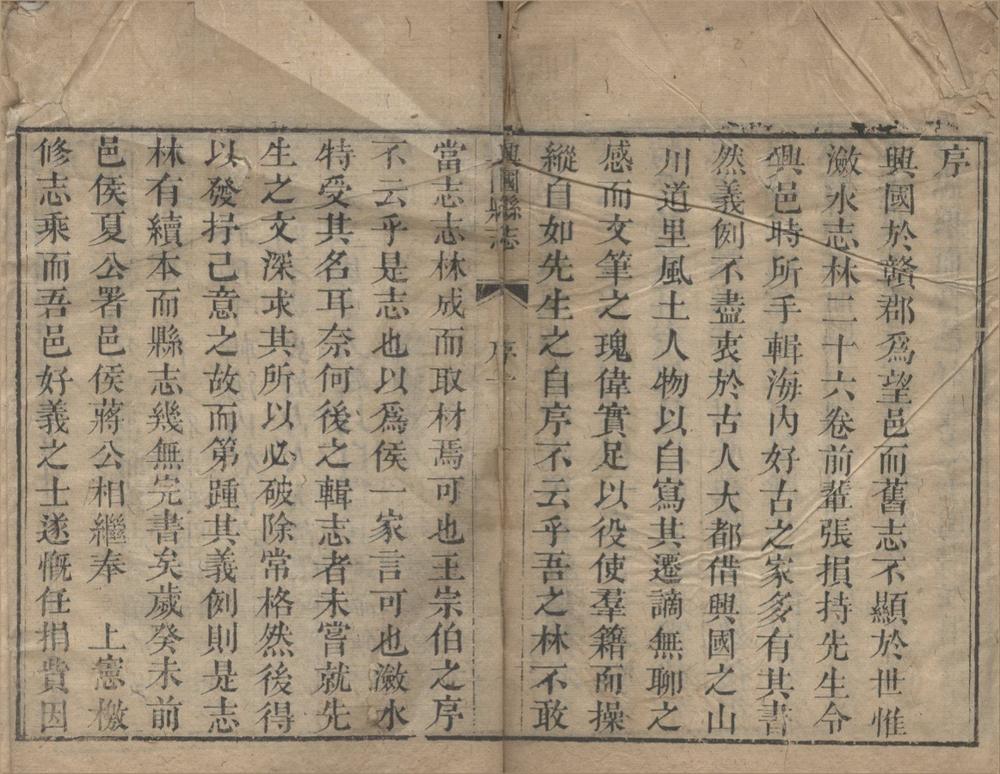 序
興國於贛郡爲望邑而舊志不顯於世惟
瀲水志林二十六卷前輩張損持先生令
興邑時所手輯海內好古之家多有其書
然義例不盡衷於古人大都借興國之山
川道里風土人物以自寫其遷謫無聊之
感而文筆之瑰偉實足以役使羣籍而操
縱自如先生之自序不云乎吾之林不敢
興國縣志
序
一
當志志林成而取材焉可也王宗伯之序
不云乎是志也以爲侯一家言可也瀲水
特受其名耳奈何後之輯志者未嘗就先
生之文深求其所以必破除常格然後得
以發抒己意之故而第踵其義例則是志
林有續本而縣志幾無完書矣歲癸未前
邑侯夏公署邑侯蔣公相繼奉　上憲檄
修志乘而吾邑好義之士遂慨任捐貲因